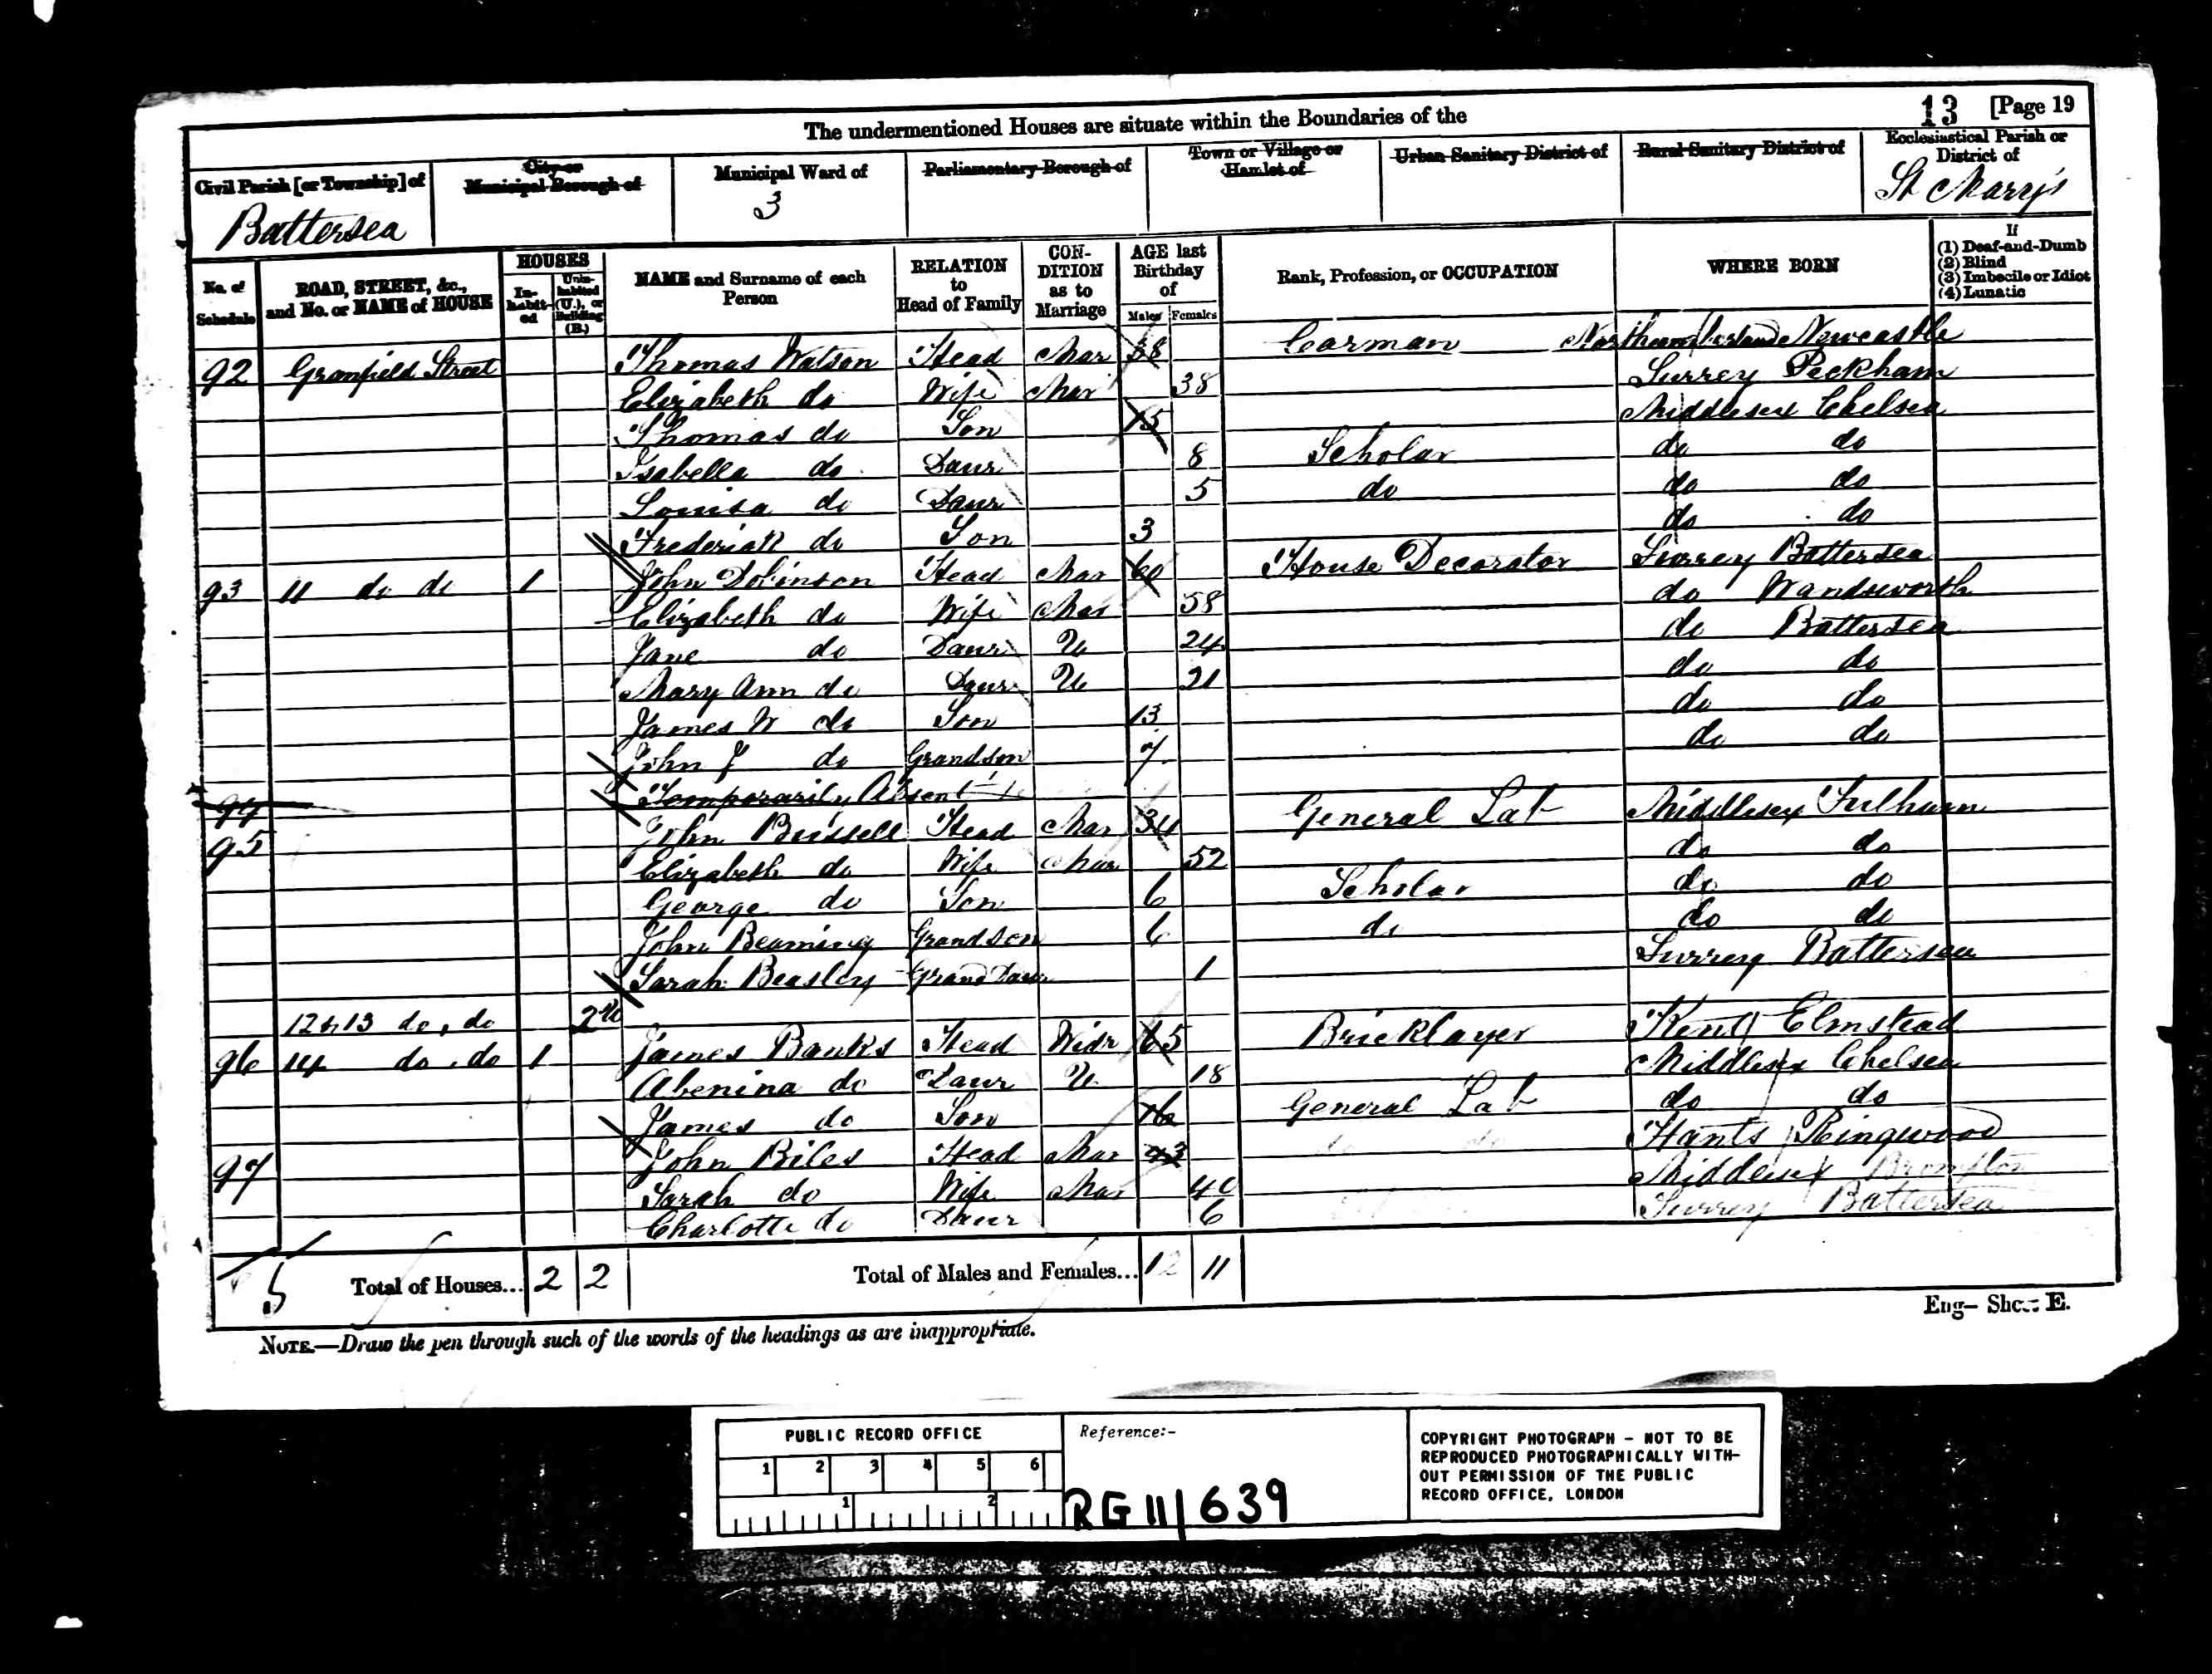 The undermentioned Houses are situate within the Boundaries of the
13 [Page 19
Civil Parish [or Township] of
City or Municipal Borough of
Municipal Ward of
Parliamentary Borough of
Town or Village or Hamlet of
Urban Sanitary District of
Rural Sanitary District of
Ecclesiastical Parish or District of
Battersea 3 St Mary's
No. of Schedule
ROAD, STREET, &c., and No. or NAME of HOUSE
HOUSES
In-habit-ed
Unin-habited (U.), or Building (B.)
NAME and Surname of each Person
RELATION to Head of Family
CON-DITION as to Marriage
AGE last Birthday of
Males Females
Rank, Profession, or OCCUPATION
WHERE BORN
If
(1) Deaf-and-Dumb
(2) Blind
(3) Imbecile or Idiot
(4) Lunatic
92 Granfield Street Thomas Watson Head Mar 38 Carman Northumberland Newcastle
Elizabeth do Wife Mar 38 Surrey Peckham
Thomas do Son 15 Middlesex Chelsea
Isabella do Daur 8 Scholar do do
Louisa do Daur 5 do do do
Frederick do Son 3 do do
93 11 do do 1 John Dobinson Head Mar 60 House Decorator Surrey Battersea
Elizabeth do Wife Mar 58 do Wandsworth
Jane do Daur U 24 do Battersea
Mary Ann do Daur U 21 do do
James W do Son 13 do do
John J do Grandson 7 do do
94 Temporarily Absent
95 John Bussell Head Mar General Lab Middlesex Fulham
Elizabeth do Wife Mar 52 do do
George do Son 6 Scholar do do
John Grandson 6 do do do
Sarah Beasley Grand Daur 1 Surrey Battersea
12 & 13 do, do 2 U
96 14 do, do 1 James Banks Head Widr 65 Bricklayer Kent Elmstead
Abenina do Daur U 18 Middlesex Chelsea
James do Son 16 General Lab do do
97 John Biles Head Mar 43 do do Hants Ringwood
Sarah do Wife Mar 40 Middlesex Brompton
Charlotte do Daur 6 Surrey Battersea
5 Total of Houses... 2 2 Total of Males and Females... 12 11
Eng— Sheet E.
NOTE.—Draw the pen through such of the words of the headings as are inappropriate.
PUBLIC RECORD OFFICE
1 2 3 4 5 6
1 2
Reference:-
RG 11/639
COPYRIGHT PHOTOGRAPH - NOT TO BE
REPRODUCED PHOTOGRAPHICALLY WITH-
OUT PERMISSION OF THE PUBLIC
RECORD OFFICE, LONDON